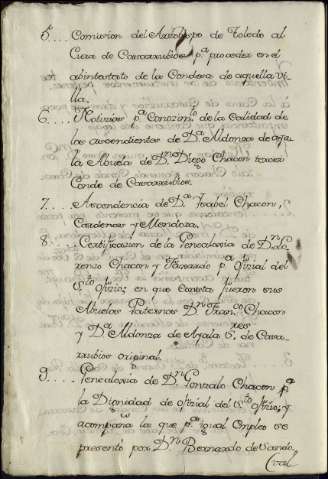 5.... Comision del Arzobispo de Toledo al
Cura de Casarrubios p.ª proceder en el
abintestato de la Condesa de aquella vi-
lla.
6.... Noticias p.ª conozim.to de la Calidad de
los ascendientes de D.ª Aldonza de aya-
la Abuela de D.n Diego Chacon tercer
Conde de Casarrubios.
7.... Ascendencia de D.ª Ysabel Chacon,
Cardenas y Mendoza.
8.... Certificacion de la Genealogia de D.n
Chacon y Faxardo p.ª oficial del
S.to oficio, en que consta fueron sus
Abuelos Paternos D.n Fran.co Chacon
y D.ª Aldonza de Ayala S.res de Casa-
rrubios original.
9.... Genealogia de D.n Gonzalo Chacon p.ª
la Dignidad de oficial del S.to oficio, y
acompaña la que p.ª igual Empleo se
presentó por D.n Bernardo de Sando-